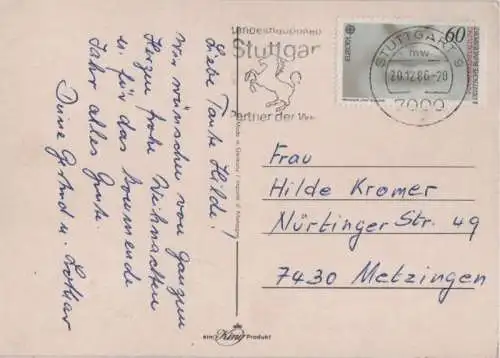 Liebe Tante Hilde!
Wir wünschen von ganzem
Herzen frohe Weihnachten
u. für das kommende
Jahr alles Gute.
Deine u. Lothar
Landeshauptstadt
Stuttgar
Partner der We
EUROPA
60
DEUTSCHE BUNDESPOST
STUTTGART 9
mw
20.12.86-20
7000
Frau
Hilde Kromer
Nürtinger Str. 49
7430 Metzingen
ein König Produkt